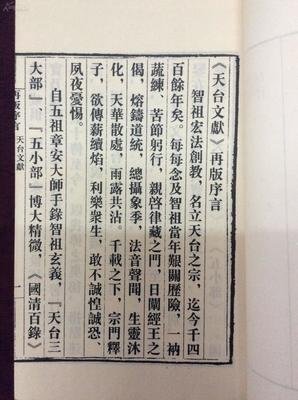 《天台文獻》再版序言
智祖宏法創教，名立天台之宗，迄今千四
百餘年矣。每每念及智祖當年艱關歷險，一衲
蔬練、苦節躬行，親啓律藏之門，日闡經王之
偈，熔鑄道統，總攝象季，法音聲聞，生靈沐
化，天華散處，雨露共沾。千載之下，宗門釋
子，欲傳薪續焰，利樂衆生，敢不誠惶誠恐、
夙夜憂惕。
自五祖章安大師手錄智祖玄義，『天台三
大部』、『五小部』博大精微，《國清百錄》
再版序言 天台文獻
一